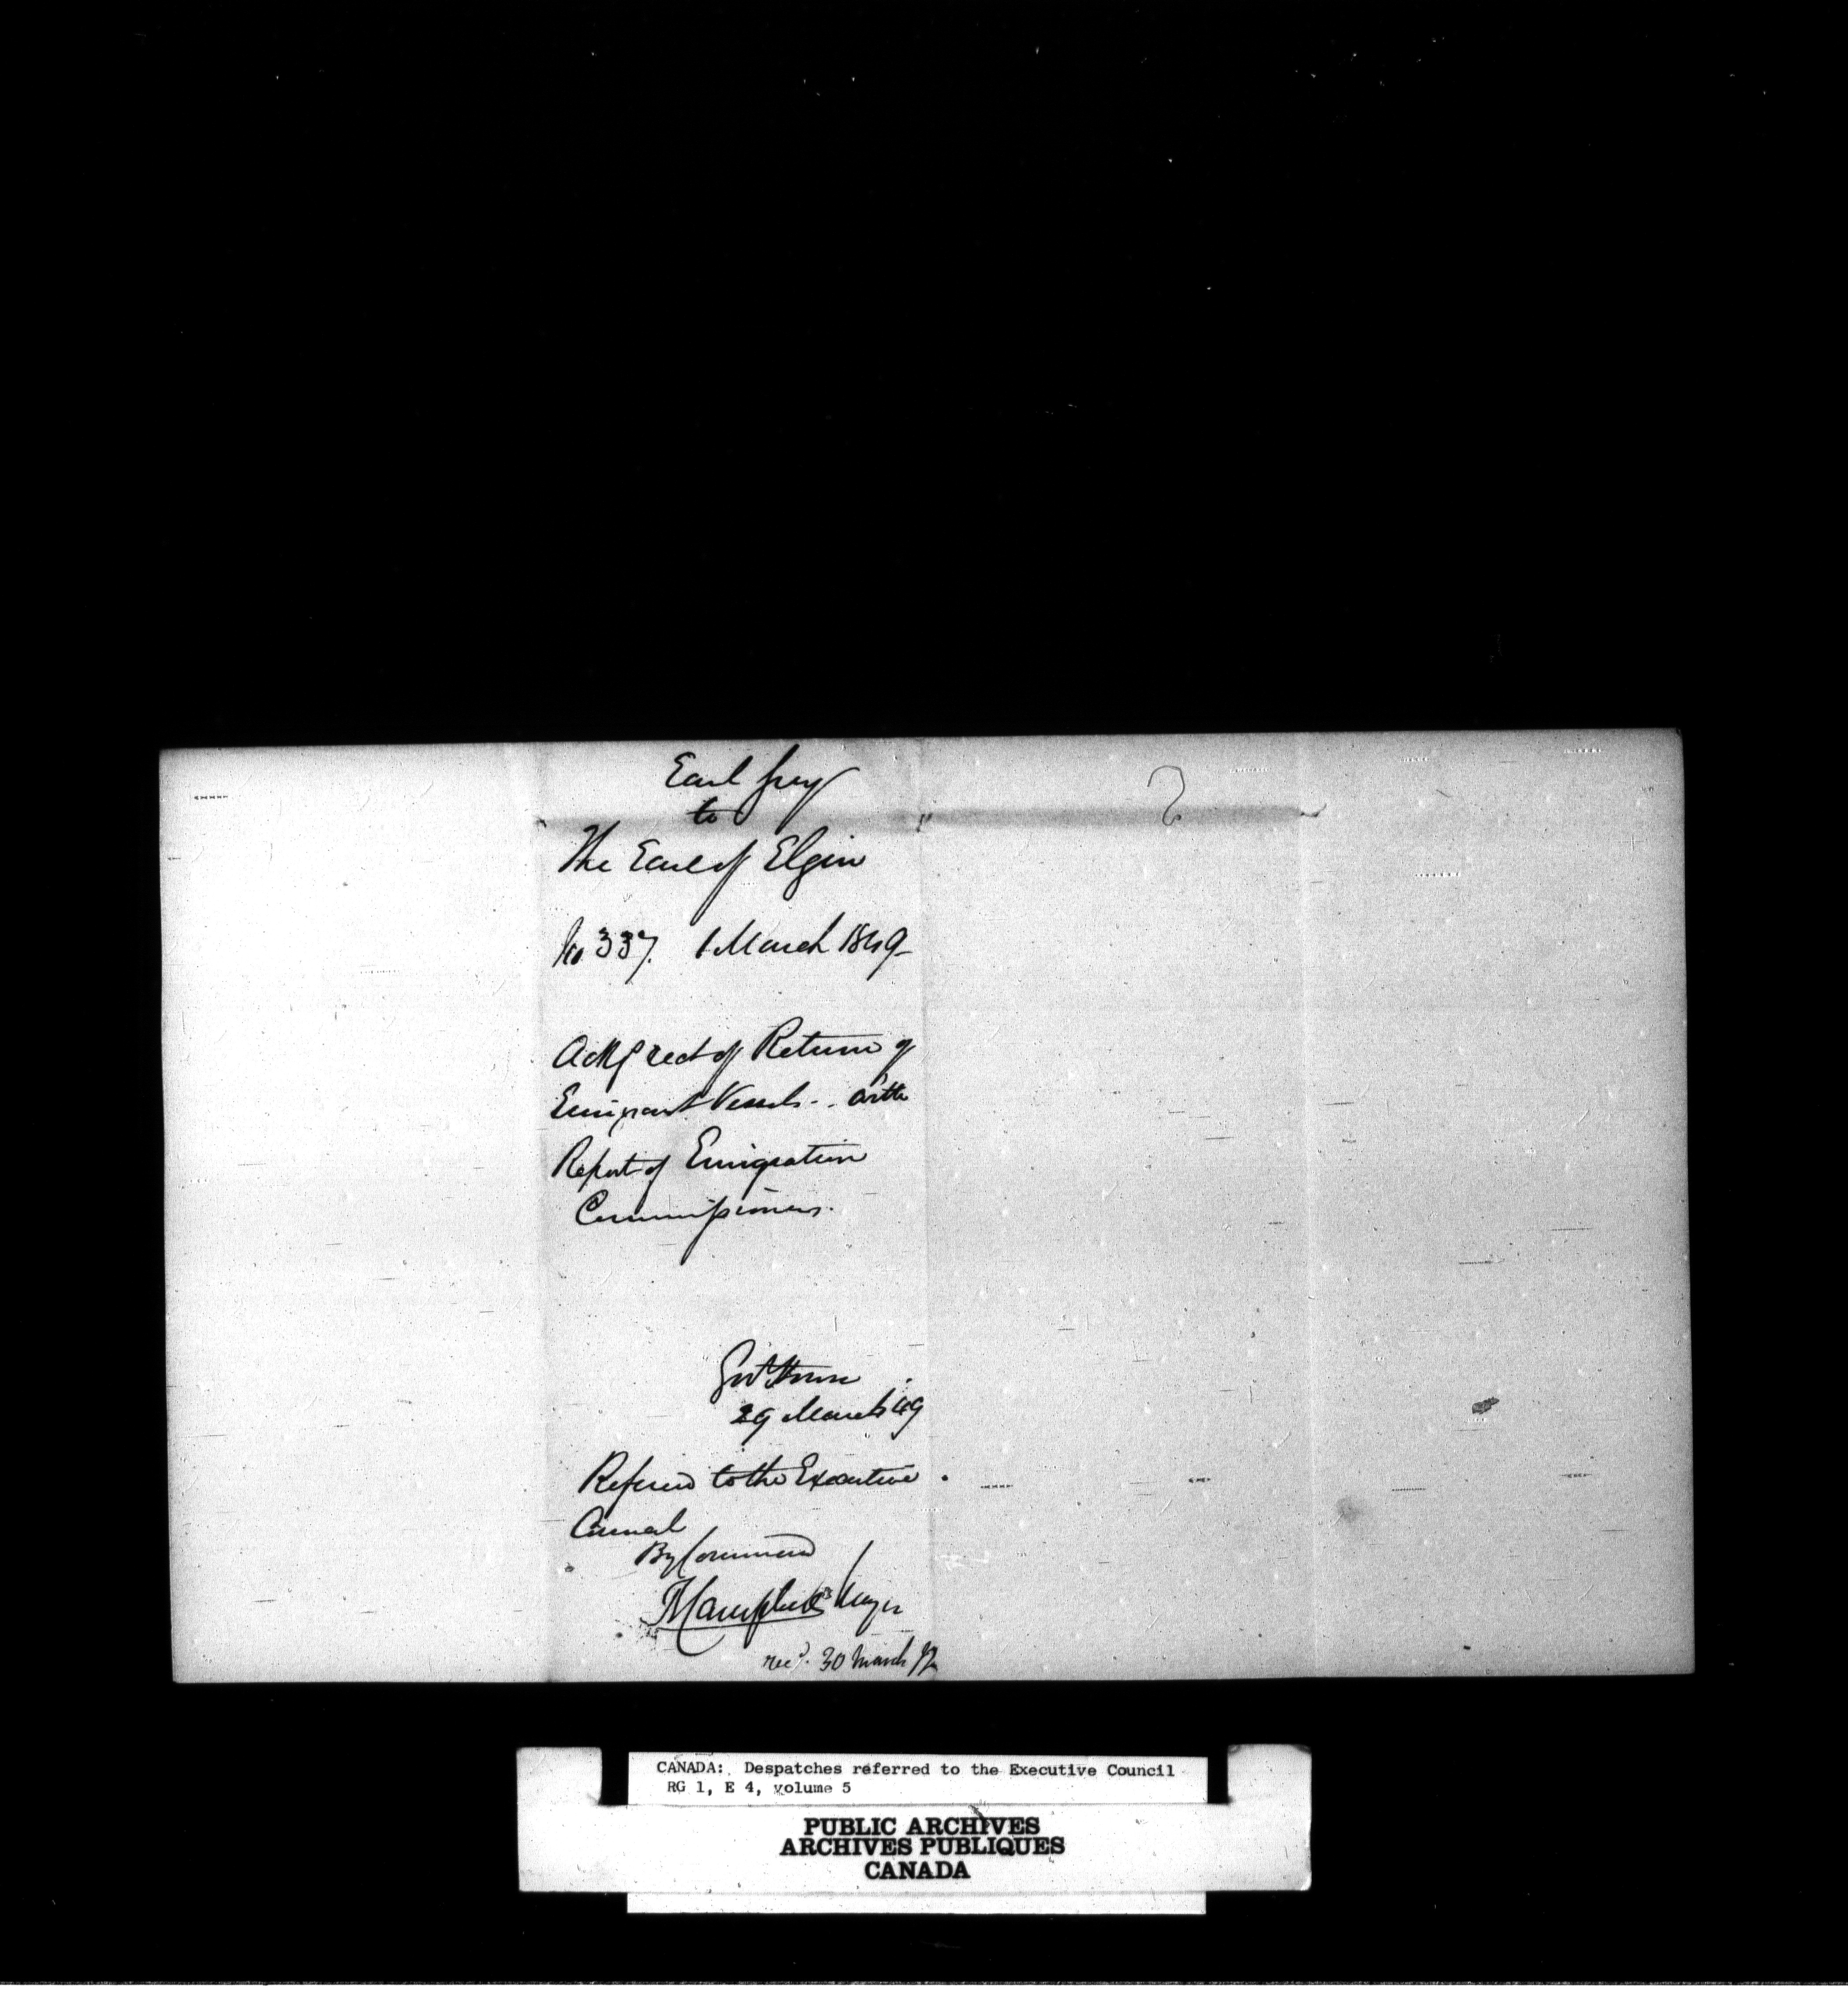 Earl Grey
to
The Earl of Elgin
No 337. 1 March 1849
Ackg rect of Return of
Emigrant Vessels - with
Report of Emigration
Commissioners.
Govt House
29 March 49
Referred to the Executive
Council
By Command
T Campbell Major
recd. 30 March
CANADA: Despatches referred to the Executive Council
RG 1, E 4, volume 5
PUBLIC ARCHIVES
ARCHIVES PUBLIQUES
CANADA